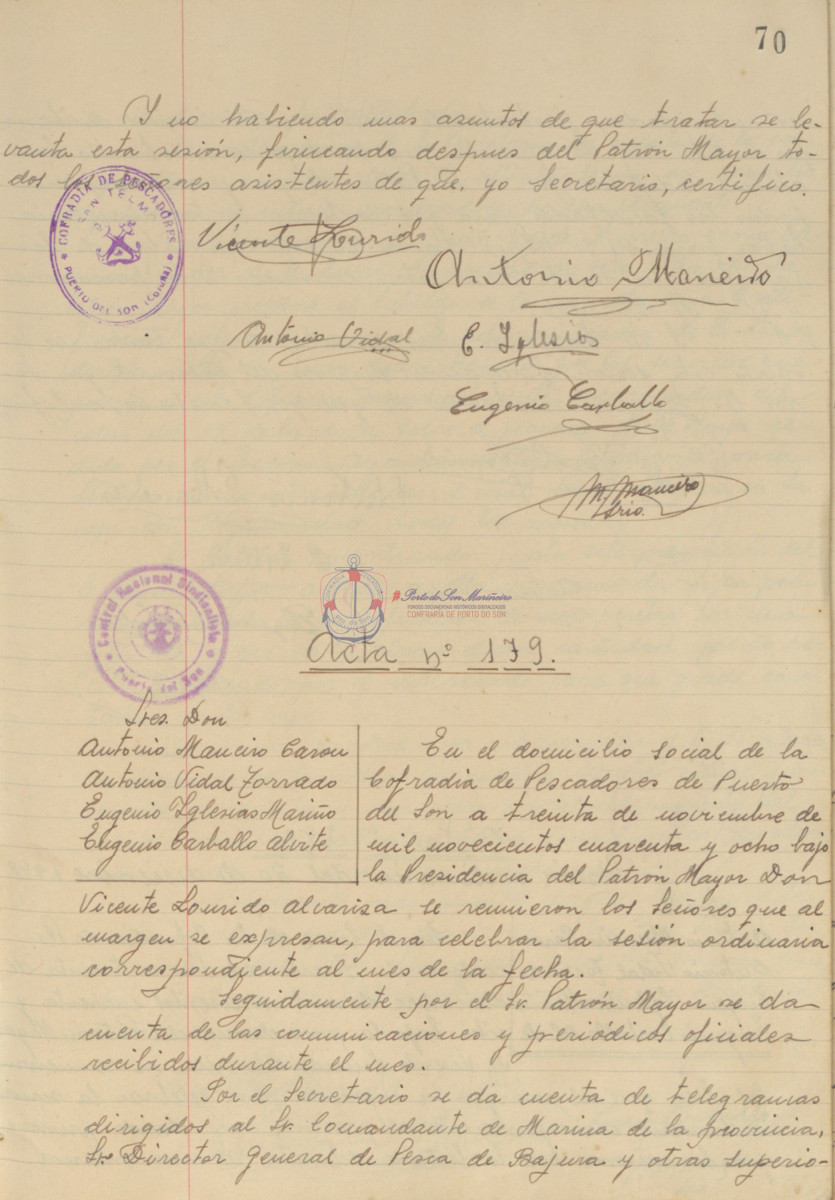 70
Y no habiendo mas asuntos de que tratar se le-
vanta esta sesión, firmando despues del Patrón Mayor to-
dos los señores asistentes de que, yo Secretario, certifico.
COFRADIA DE PESCADORES
SAN TELMO
PUERTO DEL SON (Coruña)
Vicente Lourido
Antonio Maneiro
Antonio Vidal
E. Iglesias
Eugenio Carballo
M. Maneiro
Srio.
Central Nacional Sindicalista
Puerto del Son
#Porto do Son Mariñeiro
FONDOS DOCUMENTAIS HISTÓRICOS DIXITALIZADOS
CONFRARÍA DE PORTO DO SON
Acta nº 179.
Sres. Don
Antonio Maneiro Caron
Antonio Vidal Torrado
Eugenio Iglesias Mariño
Eugenio Carballo Alvite
En el domicilio social de la
Cofradia de Pescadores de Puerto
del Son a treinta de noviembre de
mil novecientos cuarenta y ocho bajo
la Presidencia del Patrón Mayor Don
Vicente Lourido Alvariza se reunieron los Señores que al
margen se expresan, para celebrar la sesión ordinaria
correspondiente al mes de la fecha.
Seguidamente por el Sr. Patrón Mayor se da
cuenta de las comunicaciones y periódicos oficiales
recibidos durante el mes.
Por el Secretario se da cuenta de telegramas
dirigidos al Sr. Comandante de Marina de la provincia,
Sr. Director General de Pesca de Bajura y otras superio-